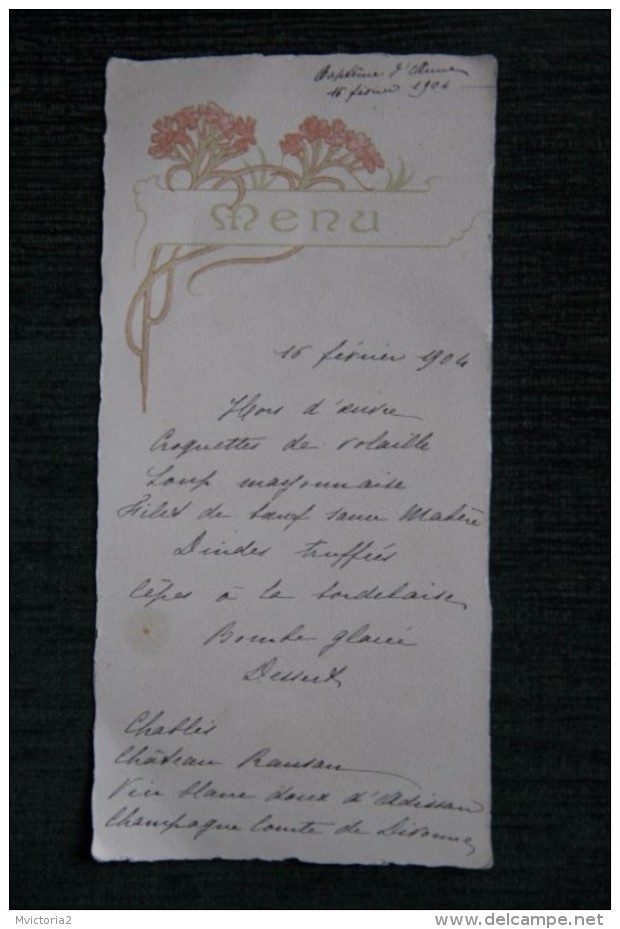 Baptême d'Anne
16 février 1904
Menu
16 février 1904
Hors d'œuvre
Croquettes de volaille
Loup mayonnaise
Filet de bœuf sauce Madère
Dindes truffées
Cèpes à la bordelaise
Bombe glacée
Dessert
Chablis
Château Rausan
Vin blanc doux d'Adissan
Champagne Comte de Divonne
Mvictoria2
www.delcampe.net